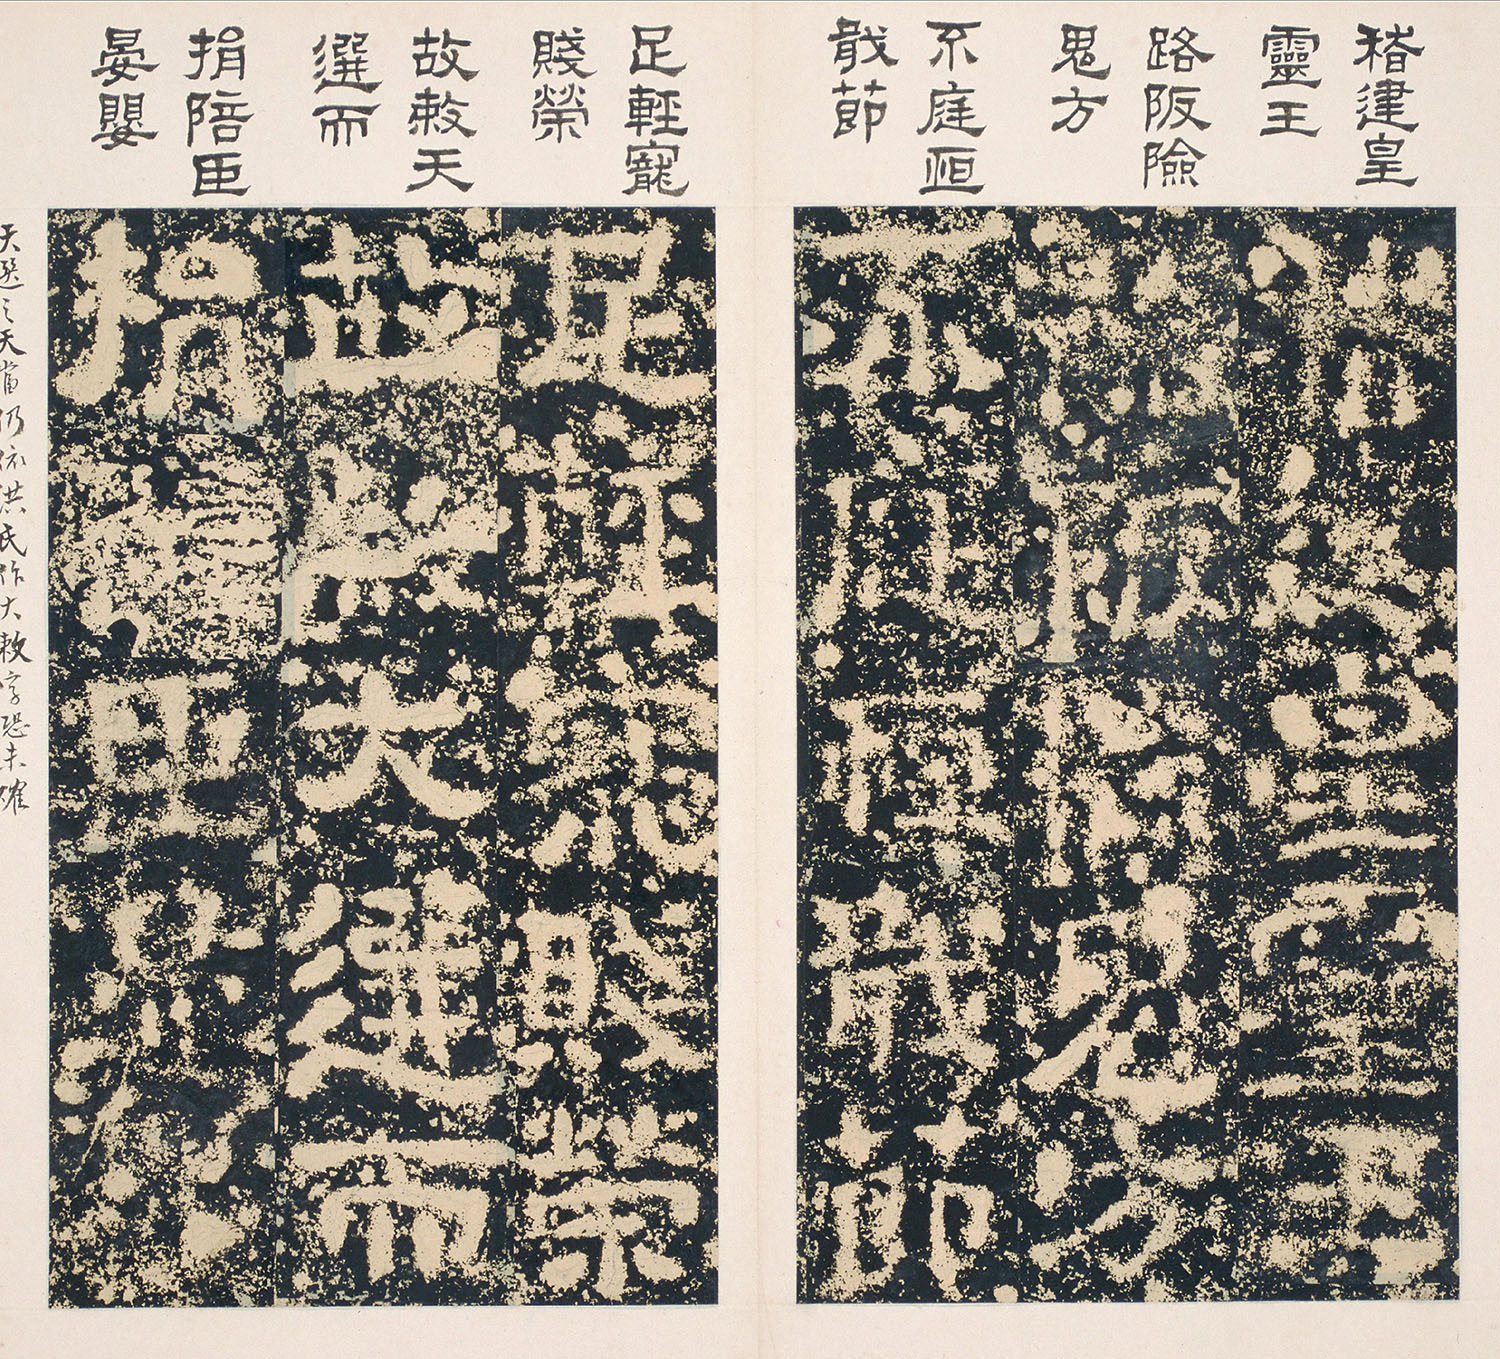 稽建皇
靈王
路阪險
鬼方
不庭恒
戢節
足輕寵
賤榮
故敕天
選而
捐陪臣
晏嬰
稽建皇靈王
路阪險鬼方
不庭恒戢節
足輕寵賤榮
故敕天選而
捐陪臣晏嬰
天選之天當仍依洪氏作大敕字恐未確